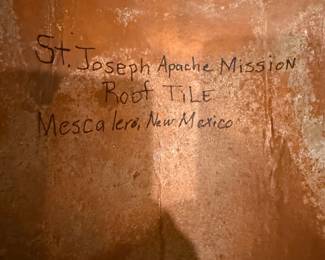 St. Joseph Apache Mission
Roof TiLE
Mescalero, New Mexico